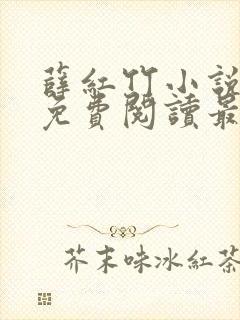 薛紅竹小說
免費閱讀最
芥末味冰紅茶